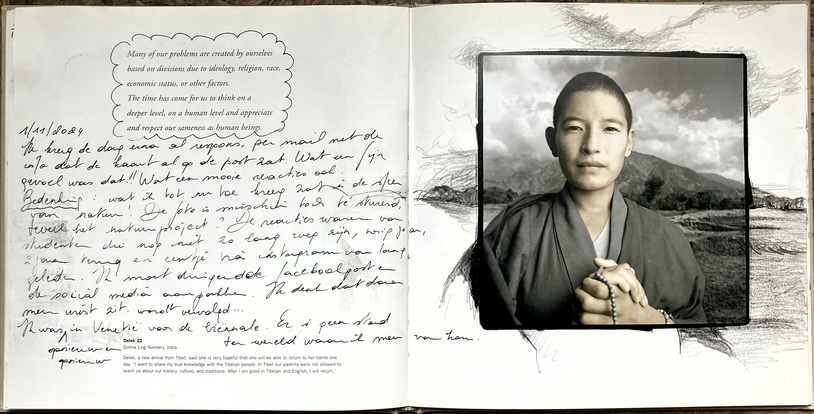 Many of our problems are created by ourselves
based on divisions due to ideology, religion, race,
economic status, or other factors.
The time has come for us to think on a
deeper level, on a human level and appreciate
and respect our sameness as human beings.
1/11/2024
Ik kreeg de dag erna al respons, per mail met de
info dat de kaart al op de post zat. Wat een fijn
gevoel was dat!! Wat een mooie reacties ook
Bedenking: wat ik tot nu toe kreeg zat in de sfeer
van natuur! De foto is misschien toch te sturend,
teveel het natuurproject? De reacties waren van
studenten die nog niet zo lang weg zijn, vorig jaar,
2 jaar terug en eentje via instagram van lang
geleden. Ik moet dringend ook facebookpost en
de social media aanpakken. Ik denk dat daar
meer winst zit. wordt vervolgd...
Ik was in Venetië voor de biennale. Er is geen stad
ter wereld waar ik meer van hou.
opnieuw en
opnieuw
Delek 22
Dolma Ling Nunnery, India
Delek, a new arrival from Tibet, said she is very hopeful that she will be able to return to her home one
day. "I want to share my true knowledge with the Tibetan people. In Tibet our parents were not allowed to
teach us about our history, culture, and traditions. After I am good in Tibetan and English, I will return."